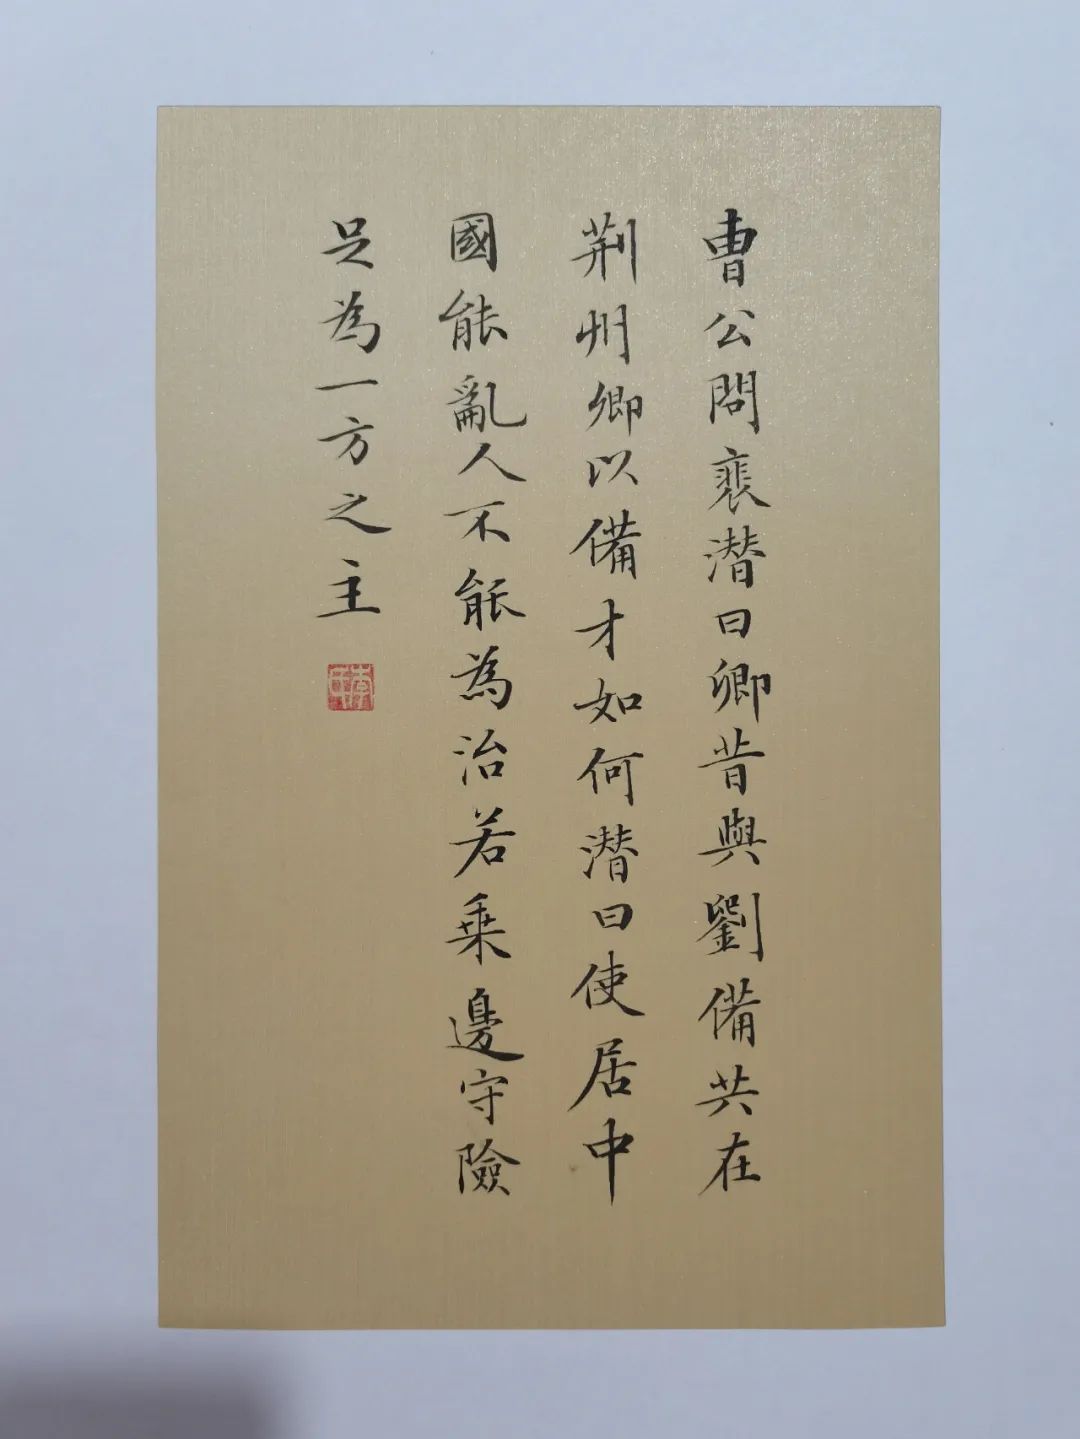 曹公問裴潜曰卿昔與劉備共在
荆州卿以備才如何潜曰使居中
國能亂人不能為治若乗邊守險
足為一方之主